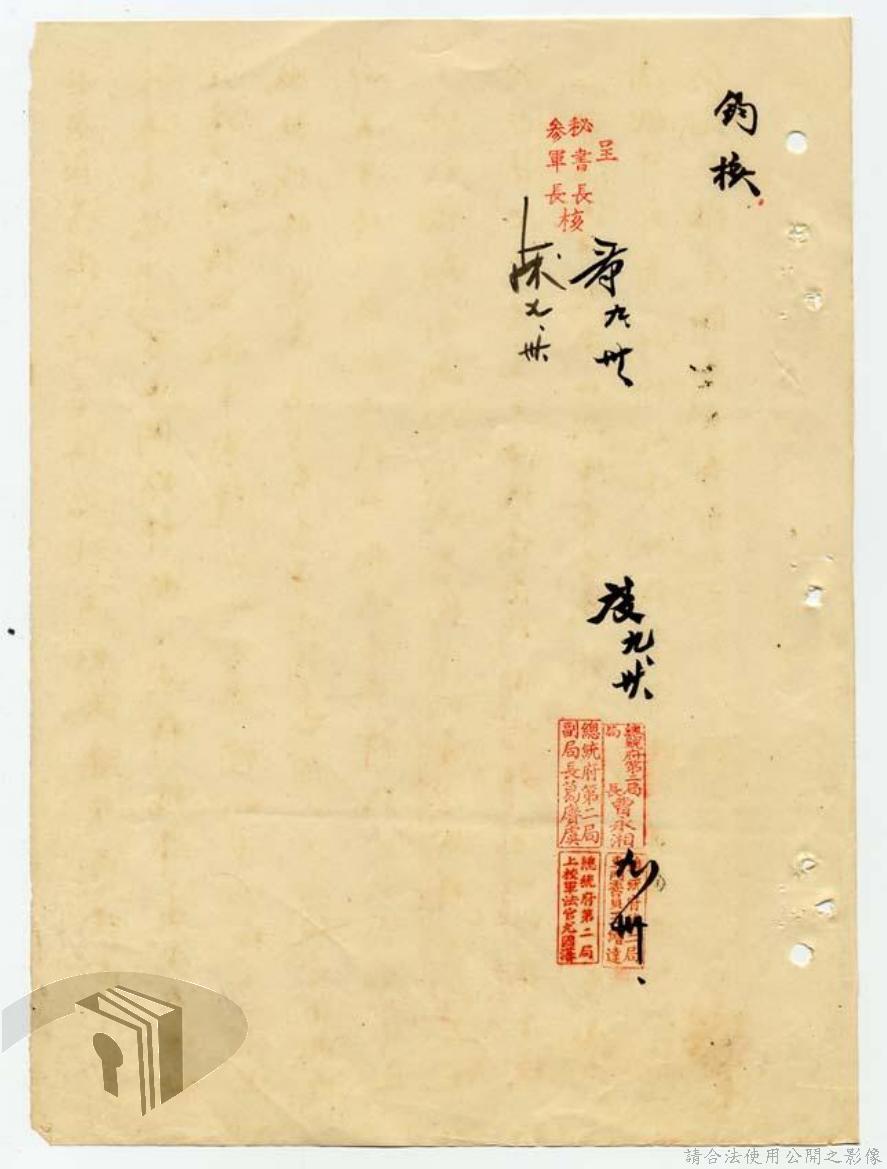 鈞核
呈
秘書長
參軍長
核
九、卅
九、卅
九、卅
總統府第二局
局長曹永湘
總統府第二局
副局長葛膺虞
九卅
總統府第二局
總統府第二局
上校軍法官尤國藩
請合法使用公開之影像